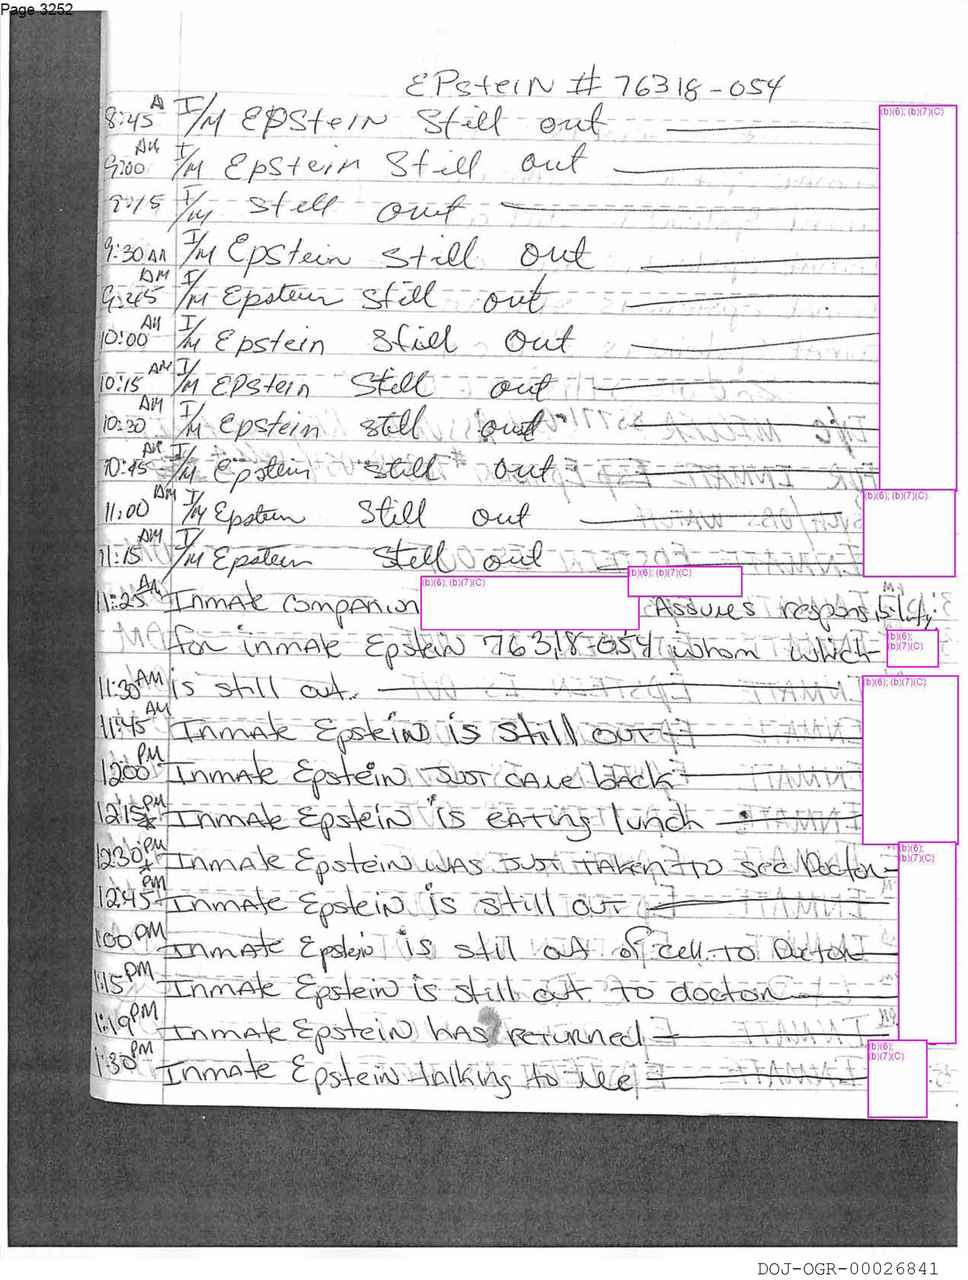 Page 3252
EPsteiN # 76318-054
8:45 A I/M EPSteIN Still out
(b)(6); (b)(7)(C)
9:00 AM I/M EpStein Still out
9:15 I/M still out
9:30 AM I/M EpStein still out
9:45 AM I/M Epstein still out
10:00 AM I/M Epstein still out
10:15 AM I/M EPStein Still out
10:30 AM I/M Epstein still out
10:45 AM I/M Epstein still out
11:00 AM I/M Epstein Still out
(b)(6); (b)(7)(C)
11:15 AM I/M Epstein still out
11:25 AM Inmate companion (b)(6); (b)(7)(C) (b)(6); (b)(7)(C) Assumes responsibility
for inmate Epstein 76318-054 whom which
(b)(6);
(b)(7)(C)
11:30 AM is still out.
(b)(6); (b)(7)(C)
11:45 AM Inmate Epstein is still OUT
12:00 PM Inmate Epstein JUST came back
12:15 PM * Inmate Epstein is eating lunch
12:30 PM * Inmate Epstein was JUST TAKEN TO see Doctor
(b)(6);
(b)(7)(C)
12:45 PM Inmate Epstein is still OUT
1:00 PM Inmate Epstein is still out of cell to Doctor
1:15 PM Inmate Epstein is still out to doctor
1:19 PM Inmate Epstein has returned
1:30 PM Inmate Epstein talking to me
(b)(6);
(b)(7)(C)
DOJ-OGR-00026841